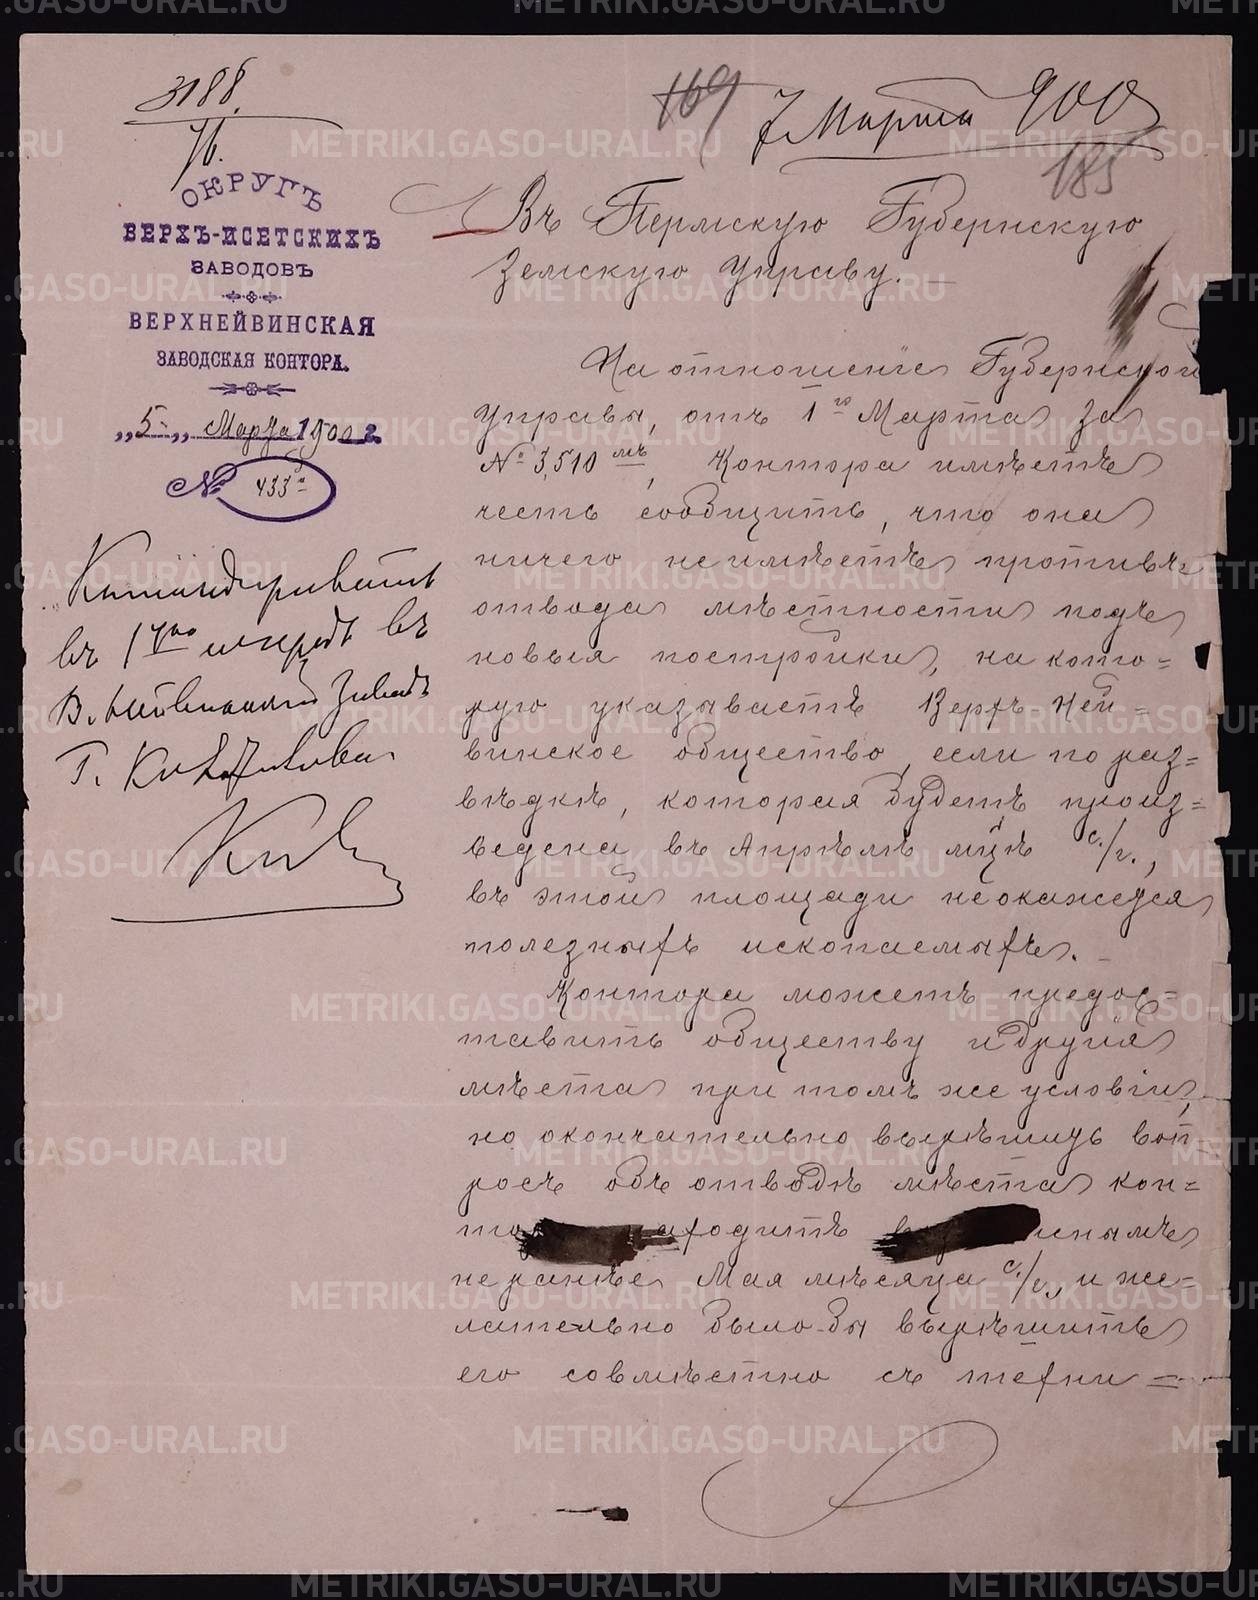 3188.
76.
169
7 Марта 900
185
ОКРУГЪ
ВЕРХЪ-ИСЕТСКИХЪ
ЗАВОДОВЪ
ВЕРХНЕЙВИНСКАЯ
ЗАВОДСКАЯ КОНТОРА.
„5„ Марта 1900 г.
№ 433
Командировать
въ 1ую очередь въ
В. Нейвинскій Заводъ
Г.
Въ Пермскую Губернскую
Земскую Управу.
На отношеніе Губернской
Управы, отъ 1го Марта за
№ 3,510мъ, Контора имѣетъ
честь сообщить, что она
ничего не имѣетъ противъ
отвода мѣстности подъ
новыя постройки, на кото=
рую указываетъ Верхъ-Ней=
винское общество, если по раз=
вѣдкѣ, которая будетъ произ=
ведена въ Апрѣлѣ мцѣ с./г.,
въ этой площади не окажется
полезныхъ ископаемыхъ.
Контора можетъ предос=
тавить обществу и другія
мѣста при томъ же условіи,
но окончательно вырѣшить воп
росъ объ отводѣ мѣста кон=
то аходитъ въ нымъ
не ранѣе Мая мѣсяца с./г., и же=
лательно было-бы вырѣшить
его совмѣстно съ техни=
METRIKI.GASO-URAL.RU